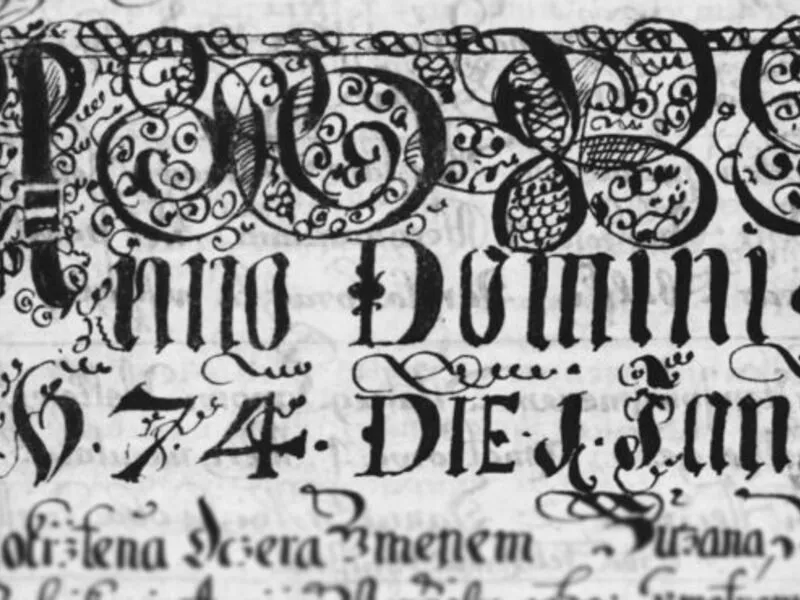 Anno Domini
6.74. DIE. 1. Jan
okrztena Dczera Jmenem Zuzana,